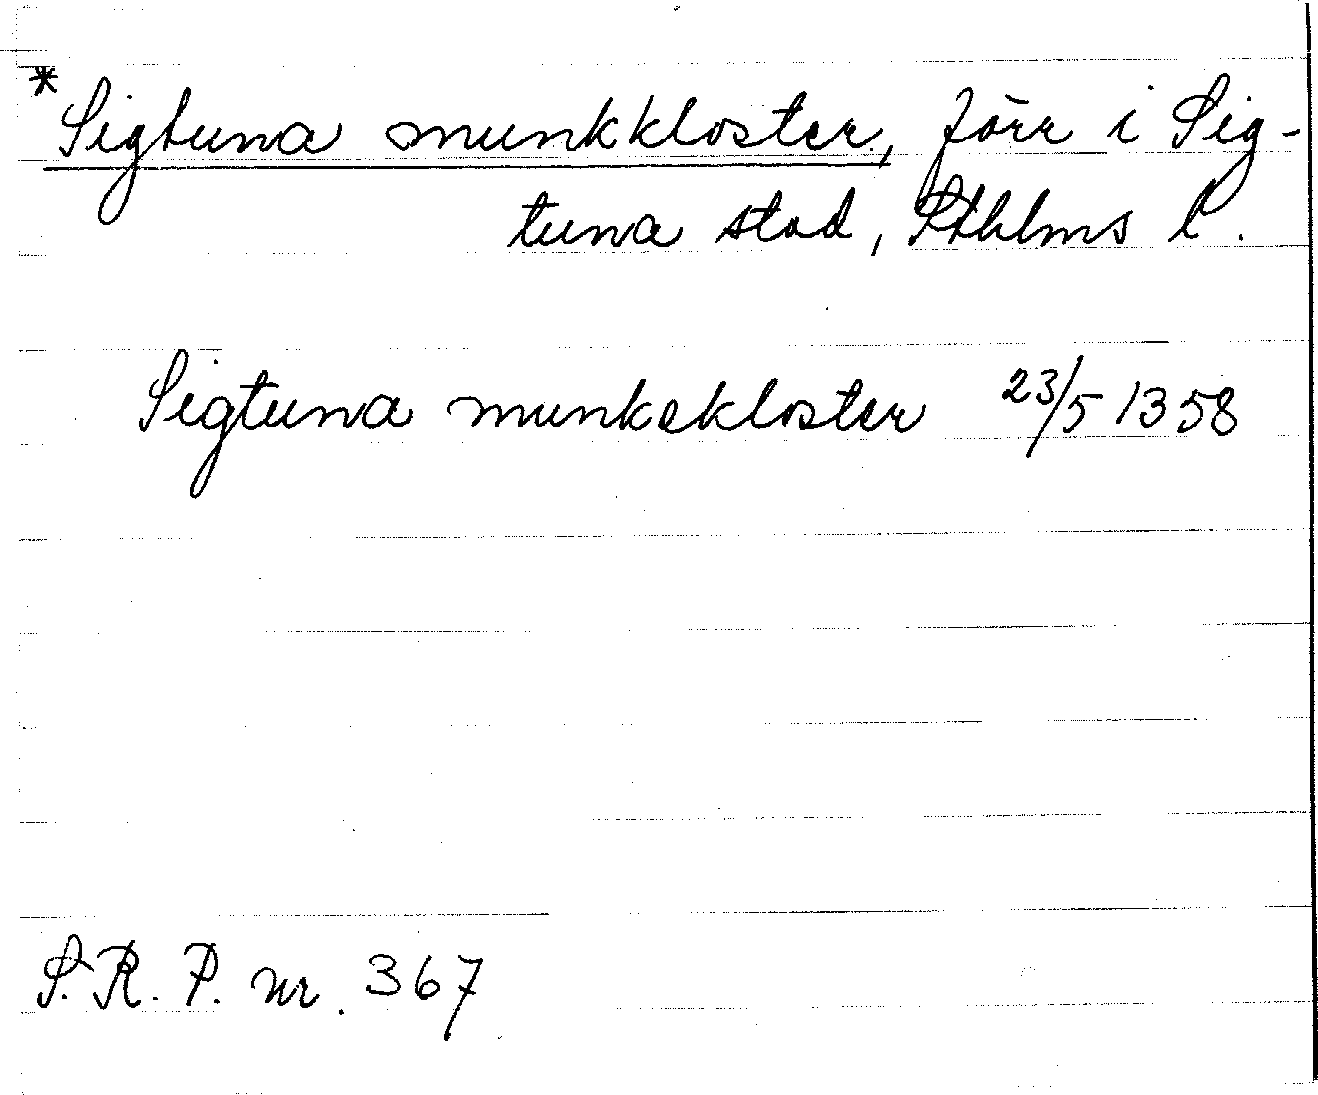 *Sigtuna munkkloster, förr i Sig-
tuna stad, Sthlms l.
Sigtuna munkekloster 23/5 1358
S.R.P. nr. 367